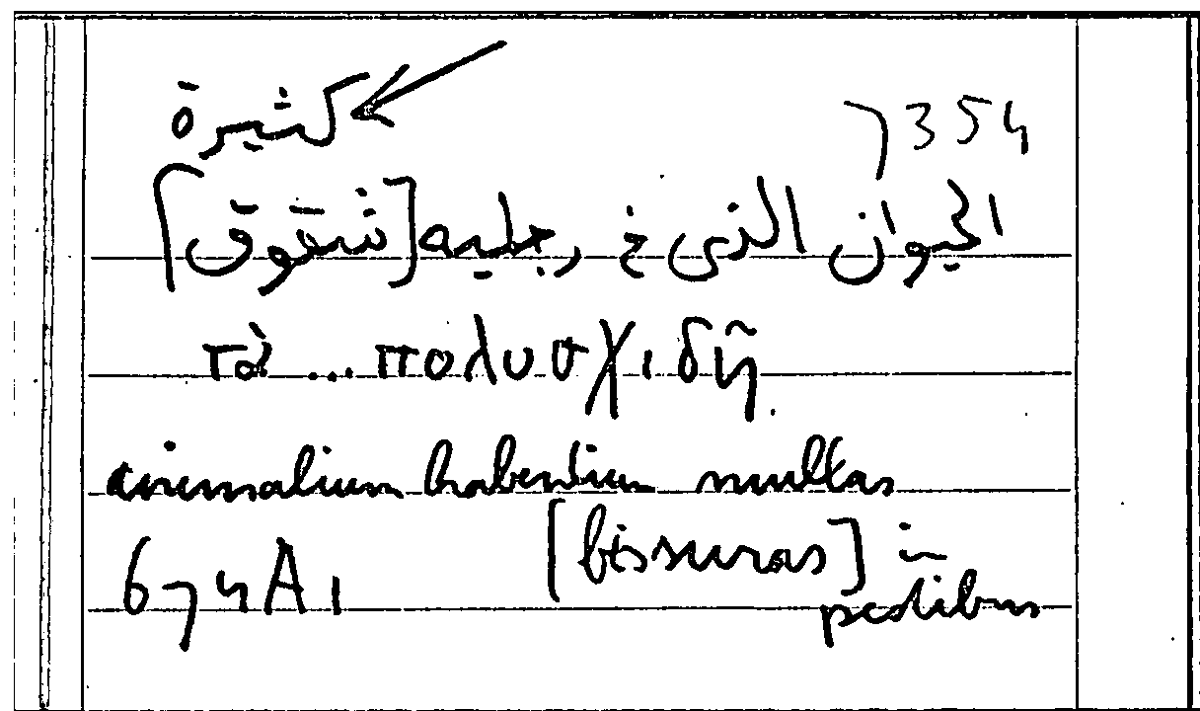 كثيرة
7354
الحيوان الذى فى رجليه [شقوق]
τὰ ... πολυσχιδῆ.
animalium habentium multas
[fissuras] in
674A1 pedibus